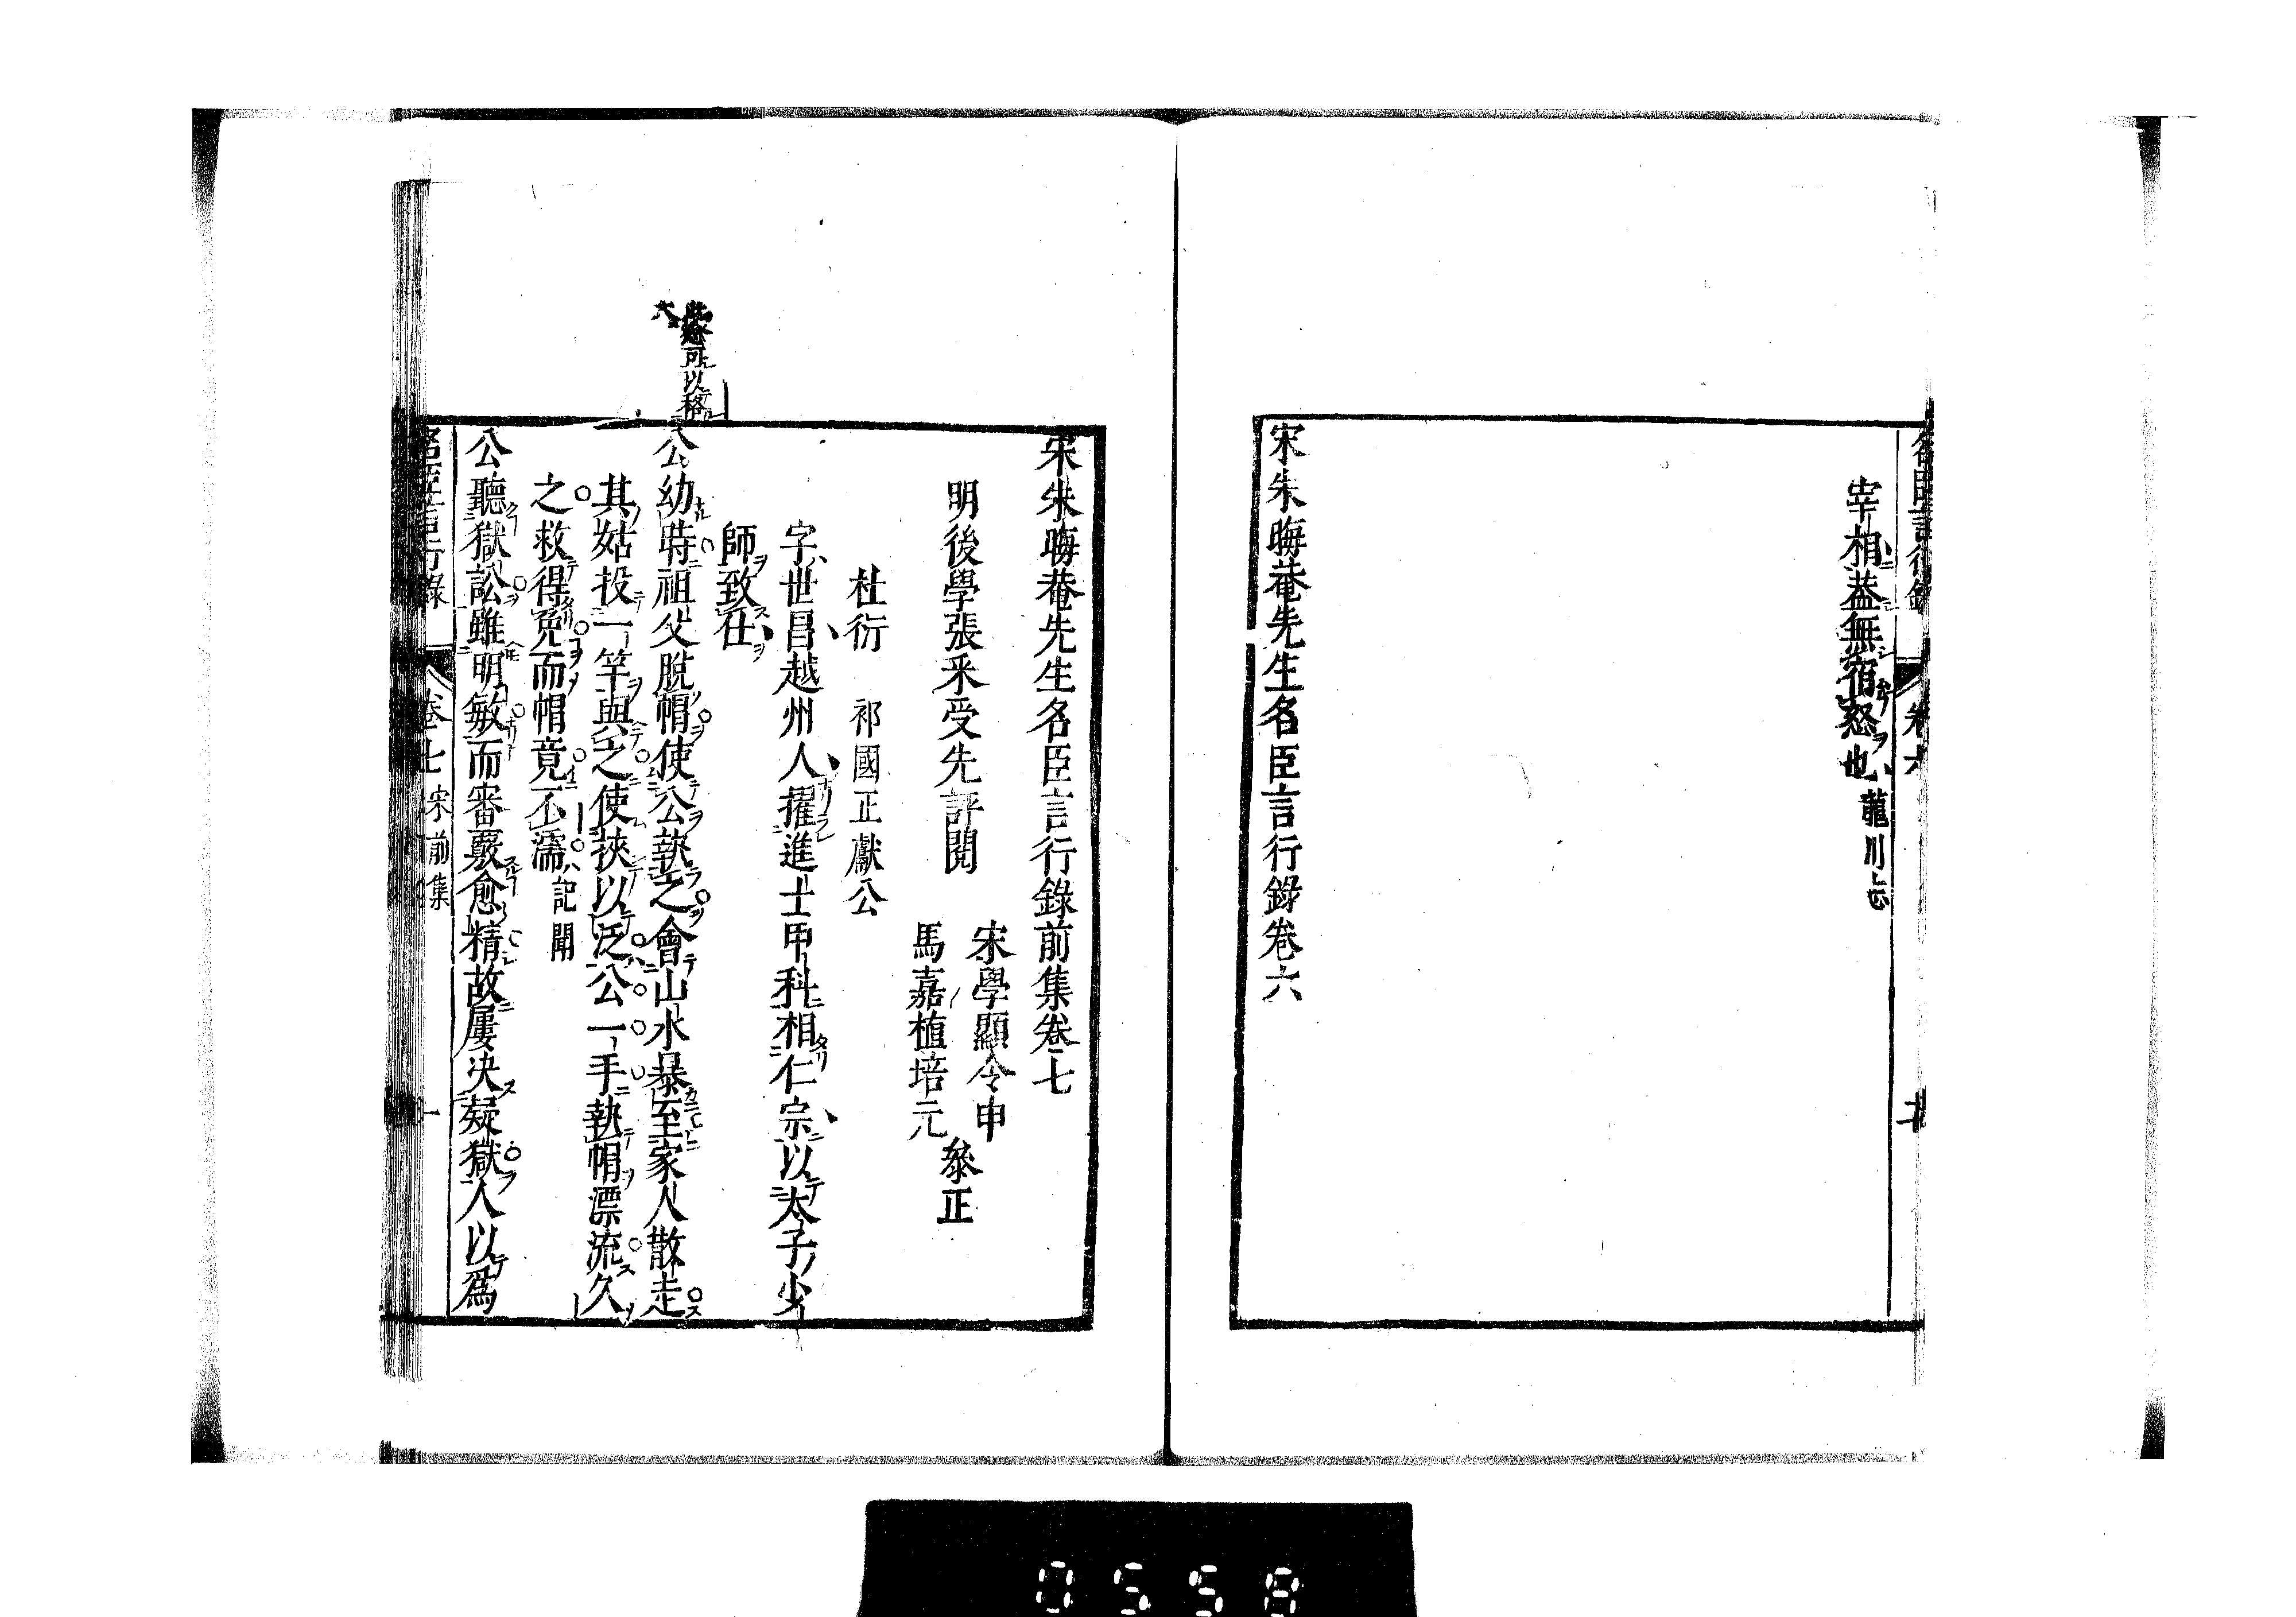 名臣言行錄 卷六
宰相葢無宿怒也 龍川志
宋朱晦菴先生名臣言行錄卷六
宋朱晦菴先生名臣言行錄前集卷七
明後學張采受先評閱
宋學顯令申
馬嘉植培元
叅正
杜衍 祁國正獻公
字世昌越州人擢進士甲科相仁宗以太子少
師致仕
可以格
公幼時祖父脫帽使公執之會山水暴至家人散走
其姑投一竿與之使挾以泛公一手執帽漂流久
之救得免而帽竟不濡 記聞
公聽獄訟雖明敏而審覈愈精故屢決疑獄人以爲
名臣言行錄 卷七 宋前集 一
0558